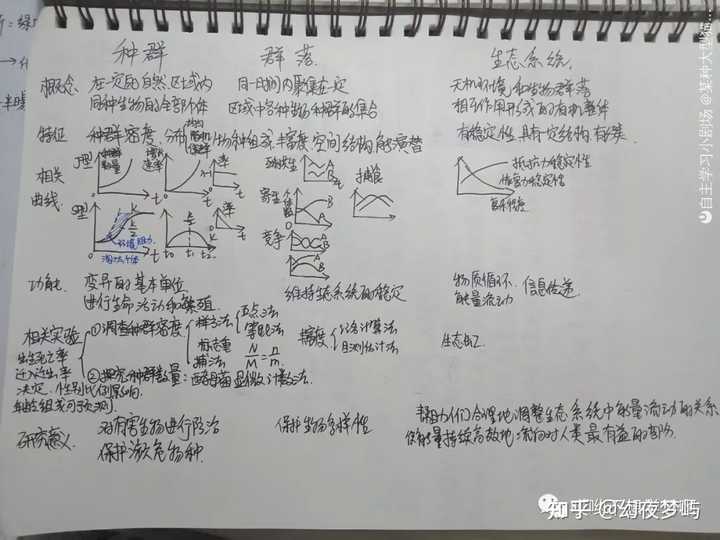 种群 群落 生态系统
概念 在一定的自然区域内 同一时间内聚集在一定 无机环境和生物群落
同种生物的全部个体 区域中各种生物种群的集合 相互作用形成的有机整体
特征 种群密度,分布 均匀 随机 物种组成,丰富度,空间结构,能演替 有稳定性,具有一定结构
相关
曲线
J型 种群数量 t 增长速率 t 率 t
互利共生 A B 捕食
寄生 A B
竞争 A B
A B
抵抗力稳定性
恢复力稳定性
S型 K K/2 环境阻力 t
淘汰个体
K/2 t₀ t₁ t₂ 率 t
功能 变异的基本单位 维持生态系统的稳定 物质循环 信息传递
进行生命活动和繁殖 能量流动
相关实验 ①调查种群密度 样方法 五点法
等距法
标志重
捕法 N/M=n/m
丰富度 记名计算法
目测估计法
生态缸
出生死亡率
迁入迁出率
决定,性别比例影响,
年龄组成可预测
②探究种群数量:酵母菌显微计数法
研究意义 对有害生物进行防治 保护生物多样性
保护濒危物种
帮助人们合理地调整生态系统中能量流动的关系
使能量持续高效地流向对人类最有益的部分
自主学习小剧场 @某种大型
知乎 @幻夜梦屿